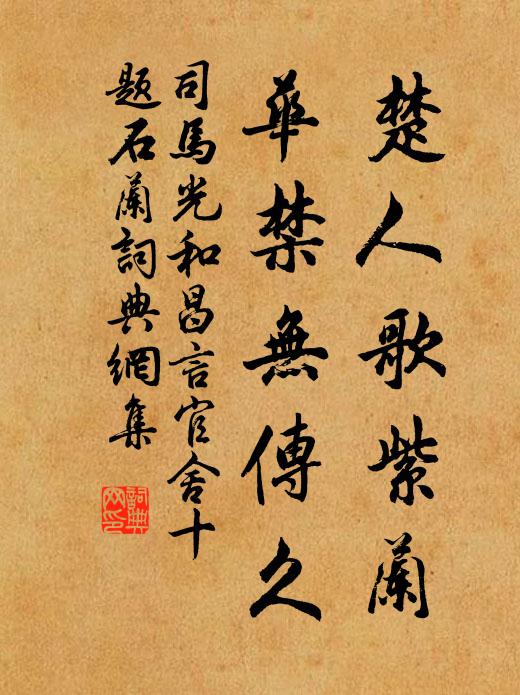 楚人歌紫蘭
華禁無傳久
司馬光和昌言官舍十
題石蘭詞典網集
詞典
网印